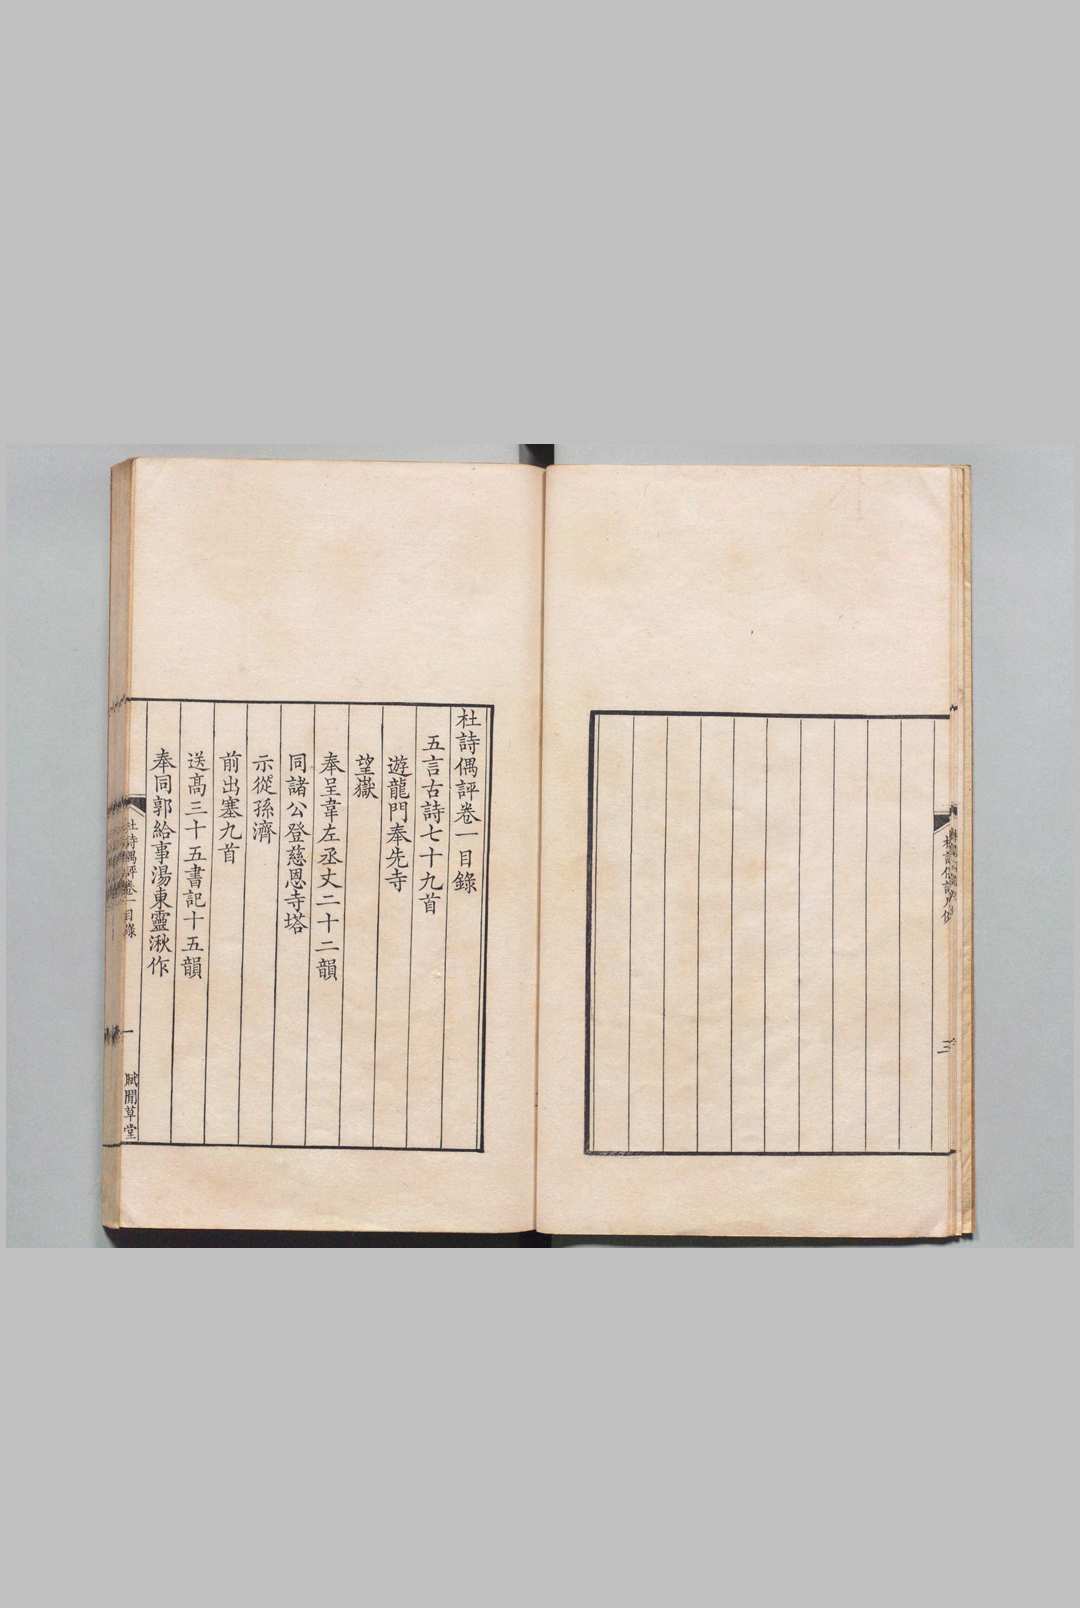 三
杜詩偶評卷一目錄
五言古詩七十九首
遊龍門奉先寺
望嶽
奉呈韋左丞丈二十二韻
同諸公登慈恩寺塔
示從孫濟
前出塞九首
送高三十五書記十五韻
奉同郭給事湯東靈湫作
杜詩偶評卷一目錄
一
賦閒草堂